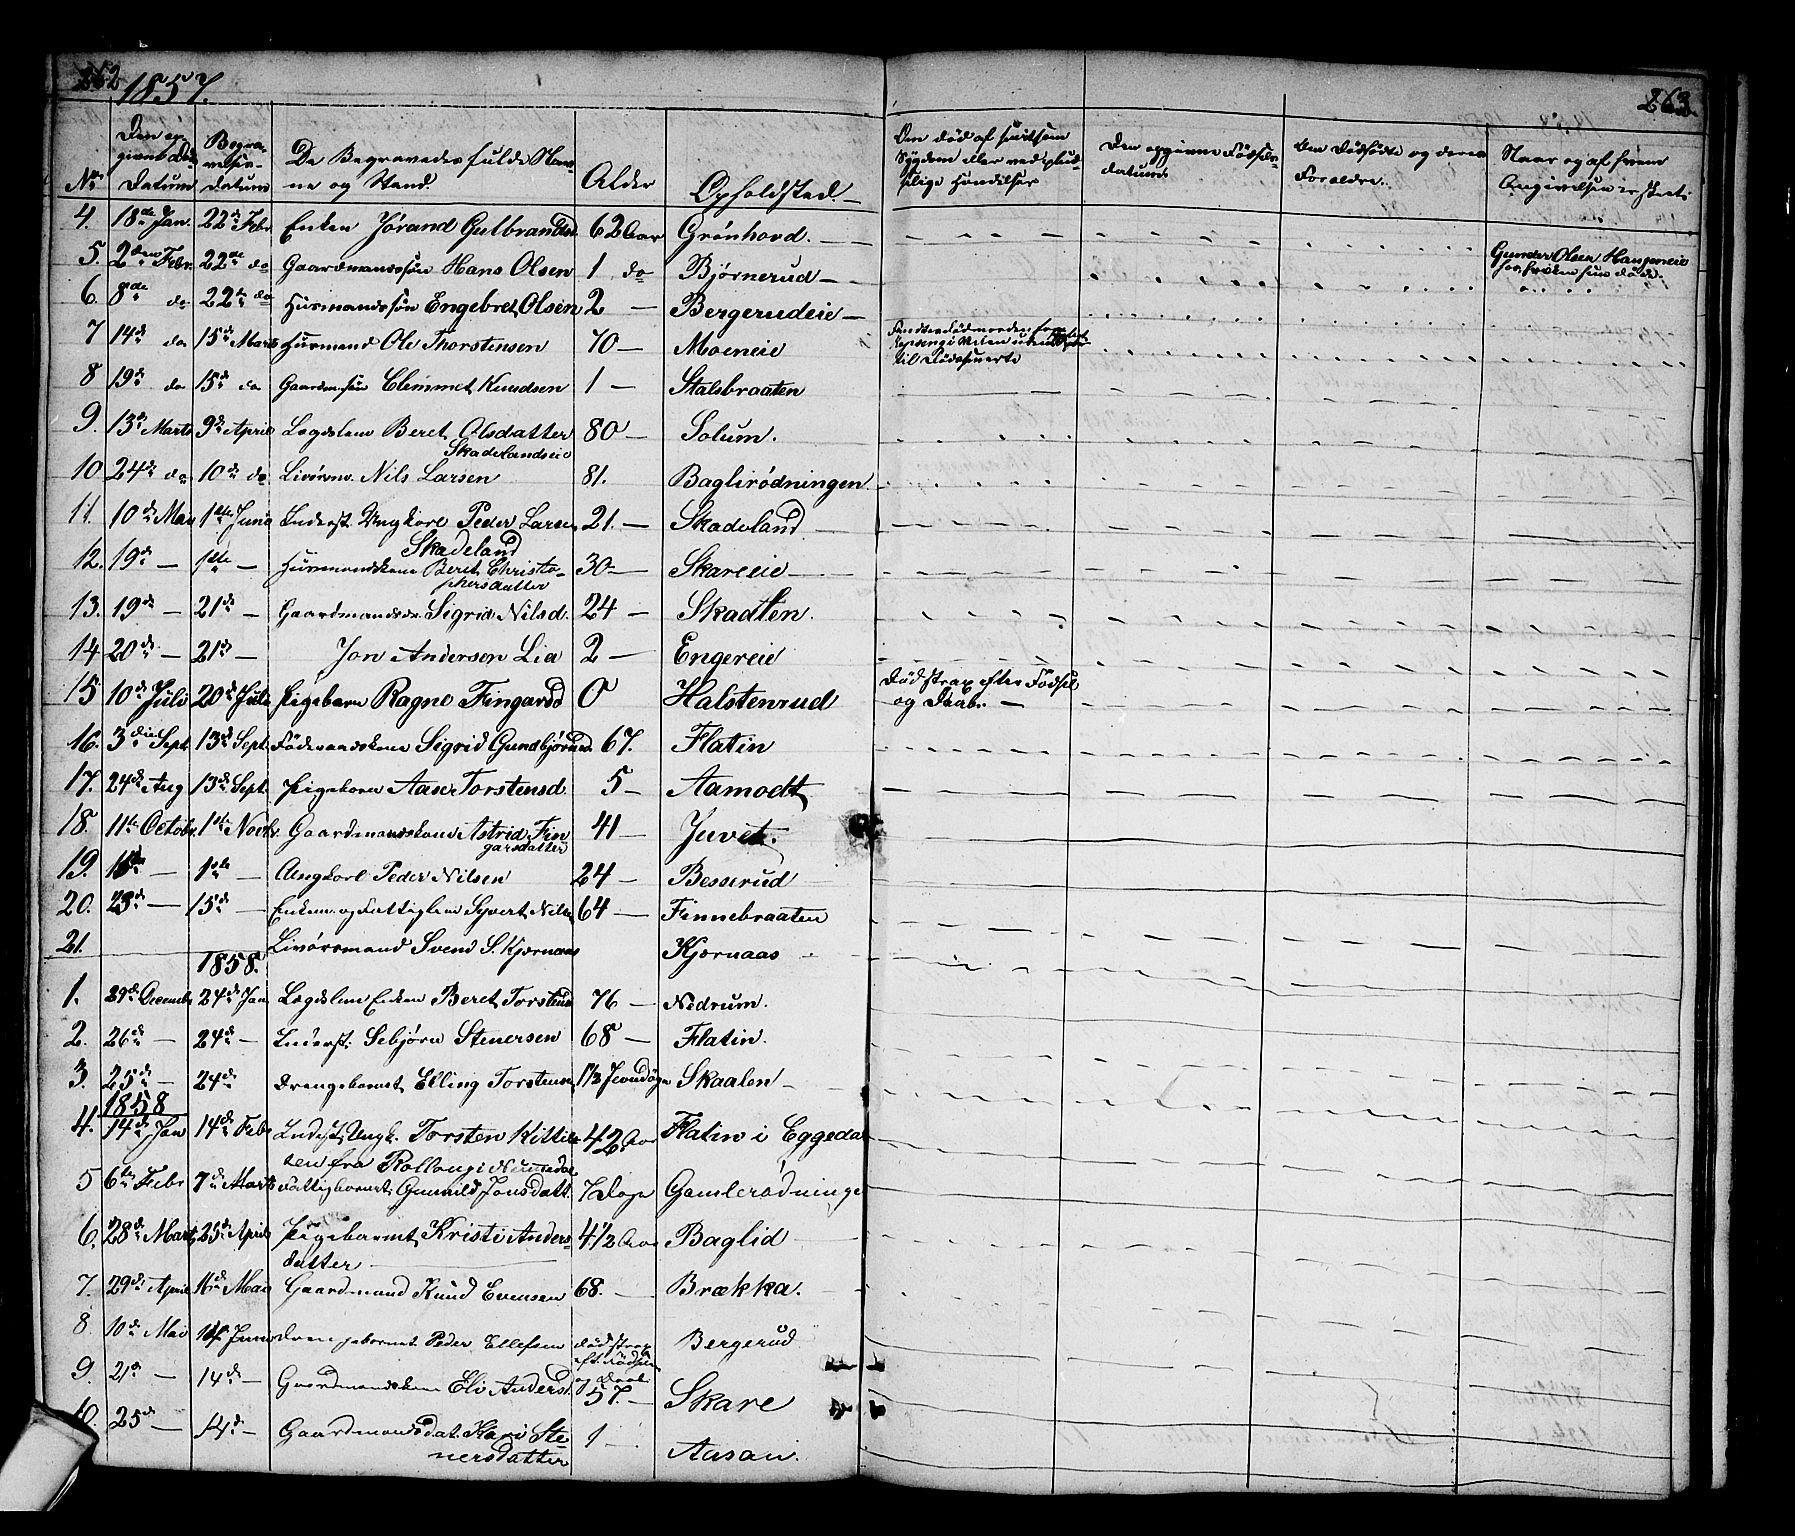 262
1857.
263
No. Den op-givne Døds Datum Begra-velses-datum De Begravedes fulde Nav-ne og Stand. Alder Opholdsted Om død af smitsom Sygdom eller ved plud-selige Hændelser Den opgivne Fødsels-datum Om Dødfødte og deres Forældre. Naar og af hvem Angivelsen er skeet.
4. 18de Jan. 22de Febr. Enken Jørand Gulbrandsd. 62 Aar Grönhovd.
5. 2den Febr. 22de do Gaardmandssøn Hans Olsen 1 do Bjørnerud Gunder Olsen
6. 8de do 22de do Huusmandssøn Engebret Olsen 2 — Bergerudeie —
7 14de do 15de Marts Huusmand Ole Thorstensen 70 — Moeneie
8 19de do 15de do Gaardm.søn Clemmet Knudsen 1 — Stalsbraaten
9. 13de Marts 9de April Lægdslem Beret Olsdatter 80 — Solum.
Skadelandseie
10. 24de do 10de do Livørsm. Nils Larsen 81. Baglirödningen.
11. 10de Mai 1ste Juni Inderst. Ungkarl Peder Larsen 21. — Skadeland
Skadeland
12. 19de — 1ste — Huusmandskone Beret Christo-
phersdatter 30 — Skareeie
13. 19de — 21de — Gaardmandsd. Sigrid Nilsd. 24 — Skadlen.
14 20de — 21de — Jon Anderson Lia 2 — Engereie
15 10de Juli 20de Juli Pigebarn Ragne Fingarsd 0 Halstenrud Død strax efter Fødsel
og Daab. —
16. 3die Sept. 13de Sept. Föderaadskone Sigrid Gundbjörnsd. 67. Flatin
17. 24de Aug 13de Sept. Pigebarn Aase Torstensd. 5 — Aamodt
18. 11te Octobr. 1ste Novbr. Gaardmandskone Astrid Fin-
garsdatter 41 — Juvet.
19. — 1ste — Ungkarl Peder Nilsen 24 — Besserud
20. 23de — 15de — Enkem. og Fattiglem Syvert Nilsen 64 — Finnebraaten
21. Livørsmand Svend S. Kjørnaas Kjørnaas
1858.
1. 29de Decembr 24de Jan Lægdslem Enken Beret Torstensd 76 — Nedrum.
2. 26de — 24de — Inderst. Sebjörn Stenersen 68 — Flatin.
3. 25de — 24de Drengebarnet Elling Torstensen 1½ Skaalen
1858
4. 14de Jan 14de Febr Inderst, Ungk. Torsten Kittil-
sen fra Rollang i Numedal 42 Aar Flatin i Eggedal
5 6te Febr 7de Marts Fattigbarnet Gunnild Jonsdatt. 7 Dage Gamlerødninge
6. 28de Marts 25de April Pigebarnet Kristi Anders-
datter 4½ Aar Baglid
7. 29de April 16de Mai Gaardmand Knud Evensen 68. — Brækka.
8. 10de Mai 14de Juni Drengebarnet Peder Ellefsen død strax
eft. Fødsel
og Daab. Bergerud
9. 21de — 14de — Gaardmandskone Eli Anderst. 57. — Skare
10. 25de — 14de — Gaardmandsdat. Kari Ste-
nersdatter 1 — Aasan.